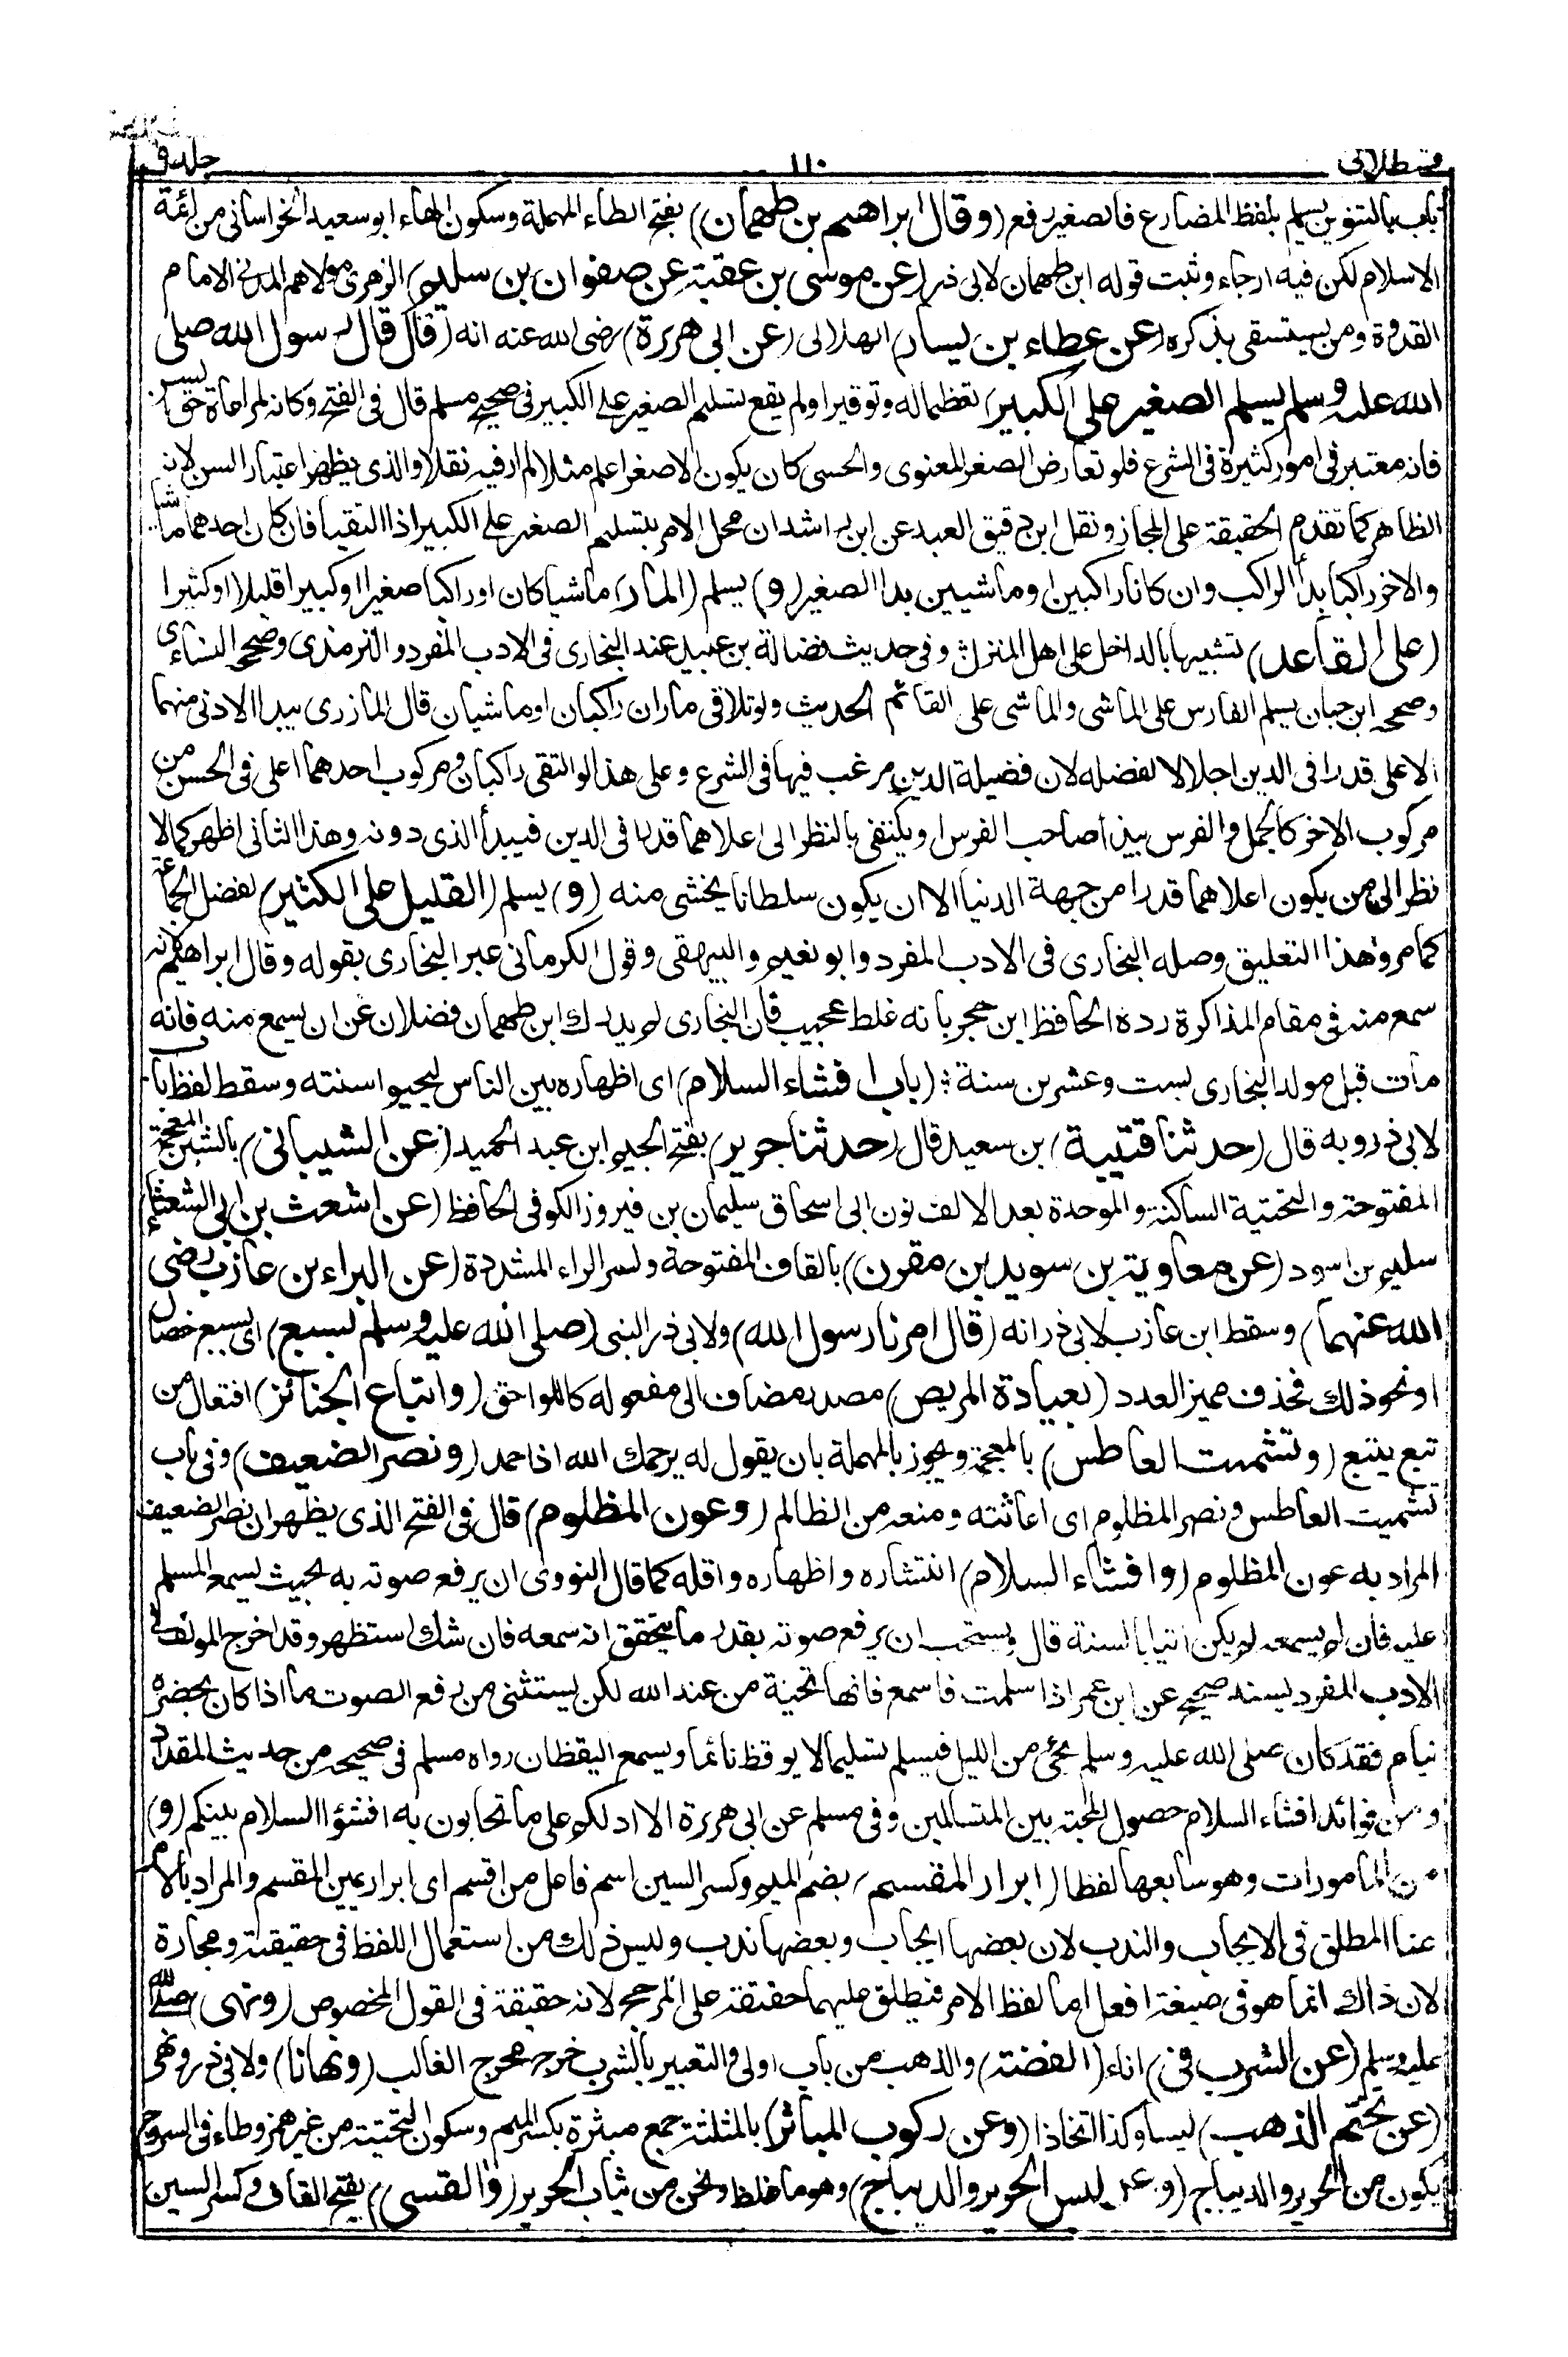 قسطلانی
١١٠
جلد ٩
باب بالتنوين يسلم بلفظ المضارع فالصغير رفع (وقال ابراهيم بن طهمان) بفتح الطاء المهملة وسكون الهاء ابو سعيد الخراسانى من ائمة
الاسلام لكن فيه ارجاء وثبت قوله ابن طهمان لابى ذر (عن موسى بن عقبة عن صفوان بن سليم) الزهرى مولاهم المدنى الامام
القدوة ومن يستسقى بذكره (عن عطاء بن يسار) الهلالى (عن ابى هريرة) رضى الله عنه انه (قال قال رسول الله صلى
الله عليه وسلم يسلم الصغير على الكبير) تعظيما له وتوقيرا ولم يقع تسليم الصغير على الكبير فى صحيح مسلم قال فى الفتح وكانه لمراعاة حق السن
فانه معتبر فى امور كثيرة فى الشرع فلو تعارض الصغر المعنوى والحسى كان يكون الاصغر اعلم مثلا لم ار فيه نقلا والذى يظهر اعتبار السن لانه
الظاهر كما تقدم الحقيقة على المجاز ونقل ابن دقيق العيد عن ابن رشد ان محل الامر بتسليم الصغير على الكبير اذا التقيا فان كان احدهما ماشيا
والاخر راكبا بدأ الراكب وان كانا راكبين او ماشيين بدا الصغير (و) يسلم (المار) ماشيا كان او راكبا صغيرا او كبيرا قليلا او كثيرا
(على القاعد) تشبيها بالداخل على اهل المنزل وفى حديث فضالة بن عبيد عند البخارى فى الادب المفرد والترمذى وصححه النساءى
وصححه ابن حبان يسلم الفارس على الماشى والماشى على القائم الحديث ولو تلاقى ماران راكبان او ماشيان قال المازرى يبدا الادنى منهما
الاعلى قدرا فى الدين اجلالا لفضله لان فضيلة الدين مرغب فيها فى الشرع وعلى هذا لو التقى راكبان ومركوب احدهما اعلى فى الحسن من
مركوب الاخر كالجمل والفرس يبدأ صاحب الفرس او يكتفى بالنظر الى اعلاهما قدرا فى الدين فيبدأ الذى دونه وهذا الثانى اظهر كما لا
نظر الى من يكون اعلاهما قدرا من جهة الدنيا الا ان يكون سلطانا يخشى منه (و) يسلم (القليل على الكثير) لفضل الجماعة
كما مر وهذا التعليق وصله البخارى فى الادب المفرد وابو نعيم والبيهقى وقول الكرمانى عبر البخارى بقوله وقال ابراهيم لانه
سمع منه فى مقام المذاكرة رده الحافظ ابن حجر بانه غلط عجيب فان البخارى لم يدرك ابن طهمان فضلا عن ان يسمع منه فانه
مات قبل مولد البخارى بست وعشرين سنة ؛ (باب افشاء السلام) اى اظهاره بين الناس ليحيوا سنته وسقط لفظ باب
لابى ذر وبه قال (حدثنا قتيبة) بن سعيد قال (حدثنا جرير) بفتح الجيم ابن عبد الحميد (عن الشيبانى) بالشين المعجمة
المفتوحة والتحتية الساكنة والموحدة بعد الالف نون ابى اسحاق سليمان بن فيروز الكوفى الحافظ (عن اشعث بن ابى الشعثاء)
سليم بن اسود (عن معاوية بن سويد بن مقرن) بالقاف المفتوحة وكسر الراء المشددة (عن البراء بن عازب رضى
الله عنهما) وسقط ابن عازب لابى ذر انه (قال امرنا رسول الله) ولابى ذر النبى (صلى الله عليه وسلم بسبع) اى بسبع خصال
او نحو ذلك فحذف مميز العدد (بعيادة المريض) مصدر مضاف الى مفعوله كاللواحق (واتباع الجنائز) افتعال من
تبع يتبع (وتشميت العاطس) بالمعجمة ويجوز بالمهملة بان يقول له يرحمك الله اذا حمد (ونصر الضعيف) وفى باب
تشميت العاطس ونصر المظلوم اى اعانته ومنعه من الظالم (وعون المظلوم) قال فى الفتح الذى يظهر ان نصر الضعيف
المراد به عون المظلوم (وافشاء السلام) انتشاره واظهاره واقله كما قال النووى ان يرفع صوته به بحيث يسمع المسلم
عليه فان لم يسمعه لم يكن اتيا بالسنة قال ويستحب ان يرفع صوته بقدر ما يتحقق انه سمعه فان شك استظهر وقد اخرج المؤلف فى
الادب المفرد بسند صحيح عن ابن عمر اذا سلمت فاسمع فانها تحية من عند الله لكن يستثنى من رفع الصوت ما اذا كان بحضرة
نيام فقد كان صلى الله عليه وسلم يجئ من الليل فيسلم تسليما لا يوقظ نائما ويسمع اليقظان رواه مسلم فى صحيحه من حديث المقداد
ومن فوائد افشاء السلام حصول المحبة بين المتسالمين وفى مسلم عن ابى هريرة الا ادلكم على ما تحابون به افشؤا السلام بينكم (و)
من المامورات وهو سابعها لفظا (ابرار المقسم) بضم الميم وكسر السين اسم فاعل من اقسم اى ابرار يمين المقسم والمراد بالامر
هنا المطلق فى الايجاب والندب لان بعضها ايجاب وبعضها ندب وليس ذلك من استعمال اللفظ فى حقيقته ومجازه
لان ذاك انما هو فى صيغة افعل اما لفظ الامر فيطلق عليهما حقيقة على المرجح لانه حقيقة فى القول المخصوص (ونهى) صلى الله
عليه وسلم (عن الشرب فى) اناء (الفضة) والذهب من باب اولى والتعبير بالشرب خرج مخرج الغالب (ونهانا) ولابى ذر ونهى
(عن تختم الذهب) لبسا وكذا اتخاذا (وعن ركوب المياثر) بالمثلثة جمع ميثرة بكسر الميم وسكون التحتية من غير همز وطاء فى السروج
يكون من الحرير والديباج (وعن لبس الحرير والديباج) وهو ما غلظ وثخن من ثياب الحرير (والقسى) بفتح القاف وكسر السين